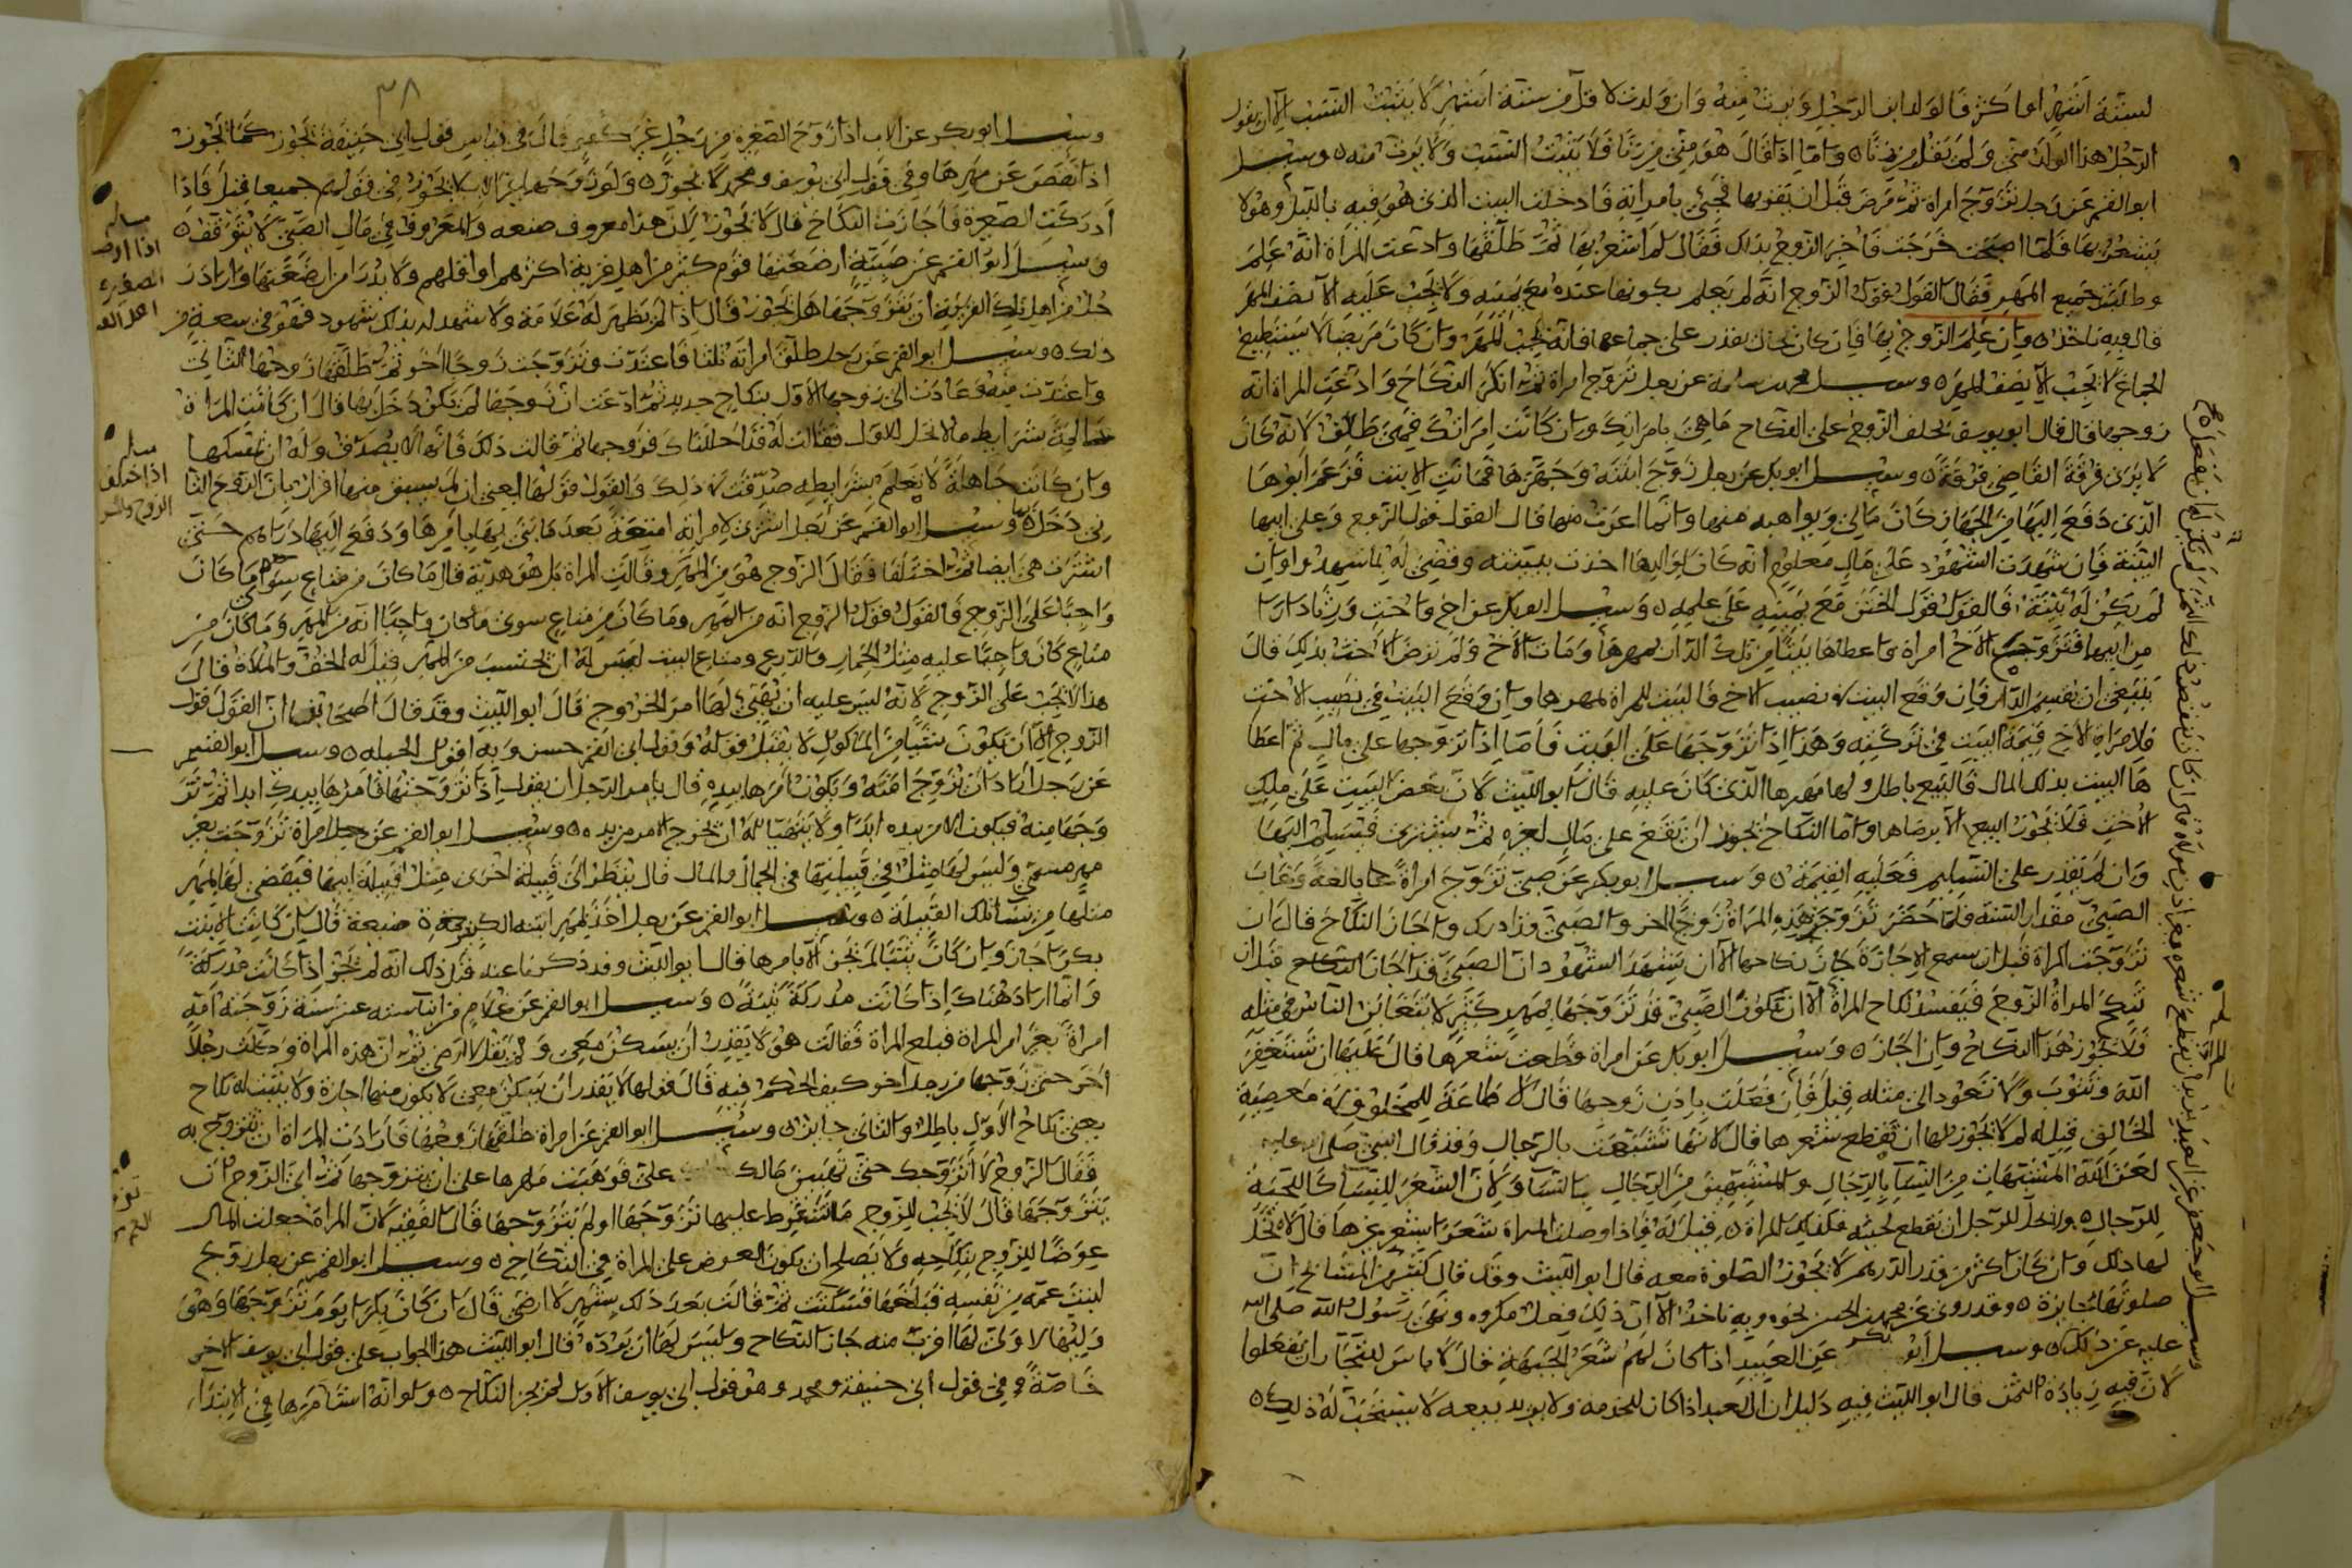 لستة اشهر او اكثر فالولد ابن الرجل ويرث منه وان ولدت لاقل من ستة اشهر لا يثبت النسب الا ان يقول
الرجل هذا الولد مني ولم يقل من زنا واما اذا قال هو مني من زنا فلا يثبت النسب ولا يرث منه وسيل
ابو القسم عن رجل تزوج امراة ثم مرض قبل ان يقربها فجيء بامراته فادخلت البيت الذي هو فيه بالليل وهو لا
يشعر بها فلما اصبحت خرجت فاخبر الزوج بذلك فقال لم اشعر بها ثم طلقها وادعت المراة انه علم
وطلبت جميع المهر فقال القول قول الزوج انه لم يعلم بكونها عنده مع يمينه ولا يجب عليه الا نصف المهر
قال وبه ناخذ وان علم الزوج بها فان كان بحال يقدر على جماعها فانه يجب المهر وان كان مريضا لا يستطيع
الجماع لا يجب الا نصف المهر وسيل محمد بن سلمة عن رجل تزوج امراة ثم انكر النكاح وادعت المراة انه
زوجها قال قال ابو يوسف يحلف الزوج على النكاح ما هي بامراتك وان كانت امراتك فهي طالق لانه كان
لا يرى فرقة القاضي فرقة وسيل ابو بكر عن رجل زوج ابنته وجهزها فماتت الابنت فزعم ابوها
الذي دفع اليها من الجهاز كان مالي ولم اهبه منها وانما اعرت منها قال القول قول الزوج وعلى ابيها
البينة فان شهدت الشهود على مال معلوم انه كان
لم يكن له بينة فالقول قول الختن مع يمينه على علمه وسيل ابو بكر عن اخ واخت ورثا دارا
من ابيها فتزوج الاخ امراة واعطاها بيتا من تلك الدار بمهرها ومات الاخ ولم ترض الاخت بذلك قال
ينبغي ان يقسم الدار فان وقع البيت في نصيب الاخ فالبيت للمراة بمهرها وان وقع البيت في نصيب الاخت
فلامراة الاخ قيمة البيت في تركته وهذا اذا تزوجها على البيت فاما اذا تزوجها على مال ثم اعطا
ها البيت بذلك المال فالبيع باطل ولها مهرها الذي كان عليه قال ابو الليث لان بعض البيت على ملك
الاخت فلا يجوز البيع الا برضاها واما النكاح يجوز ان يقع على مال لغيره ثم يشتري فيسلم اليها
وان لم يقدر على التسليم فعليه القيمة وسيل ابو بكر عن صبي تزوج امراة بالغة وغاب
الصبي مقدار السنة فلما حضر تزوجت هذه المراة زوجا اخر والصبي قد ادرك واجاز النكاح قال ان
تزوجت المراة قبل ان سمع الاجازة جاز نكاحها الا ان يشهد الشهود ان الصبي قد اجاز النكاح قبل ان
تنكح المراة الزوج فيفسد نكاح المراة الا ان تكون الصبي قد تزوجها بمهر كثير لا يتغابن الناس في مثله
فلا يجوز هذا النكاح وان اجاز وسيل ابو بكر عن امراة قطعت شعرها قال عليها ان تستغفر
الله وتتوب ولا تعود الى مثله قيل فان فعلت باذن زوجها قال لا طاعة للمخلوق في معصية
الخالق قيل له لم لا يجوز لها ان تقطع شعرها قال لانها تشبهت بالرجال وقد قال النبي صلى الله عليه
لعن الله المتشبهات من النساء بالرجال والمتشبهين من الرجال بالنساء ولان الشعر للنساء كاللحية
للرجال ولا يحل للرجل ان يقطع لحيته فكذلك المراة قيل له فاذا وصلت المراة شعرا بشعر غيرها قال لا يحل
لها ذلك وان كان اكثر من قدر الدرهم لا يجوز الصلوة معه قال ابو الليث وقد قال كثير من المشايخ ان
صلوتها جايزة وقد روي عن محمد بن الحسن نحوه وبه ناخذ الا ان ذلك فعل مكروه ونهى رسول الله صلى الله
عليه عن ذلك وسيل ابو بكر عن العبيد اذا كان لهم شعر الجبهة قال لا باس للتجار ان يفعلوا
لان فيه زيادة الثمن قال ابو الليث فيه دليل ان العبد اذا كان للخدمة ولا يريد بيعه لا يستحب له ذلك
٣٨
وسيل ابو بكر عن الاب اذا زوج الصغيرة من رجل غير كفو قال في قياس قول ابي حنيفة يجوز كما يجوز
اذا نقص عن مهرها وفي قول ابي يوسف ومحمد لا يجوز ولو زوجها غير الاب لا يجوز في قولهم جميعا قيل فاذا
ادركت الصغيرة فاجازت النكاح قال لا يجوز لان هذا معروف صنعه والمعروف في مال الصبي لا يتوقف
وسيل ابو القسم عن صبية ارضعتها قوم كثير من اهل قرية اكثرهم او اقلهم ولا يدرا من ارضعتها واراد ر
جل من اهل تلك القرية ان يتزوجها هل يجوز قال اذا لم يظهر له علامة ولا شهد له بذلك شهود فهو في سعة من
ذلك وسيل ابو القسم عن رجل طلق امراته ثلثا فاعتدت وتزوجت زوجا اخر ثم طلقها زوجها الثاني
واعتدت منه وعادت الى زوجها الاول بنكاح جديد ثم ادعت ان زوجها لم يكن دخل بها قال ان كانت المراة
عالمة بشرايط ما لا تحل للاول فقالت له قد احللنا فتزوجها ثم قالت ذلك فانها لا يصدق وله ان يمسكها
وان كانت جاهلة لا يعلم بشرايطه صدقت في ذلك والقول قولها يعني ان لم يسبق منها اقرار بان الزوج الثا
ني دخل وسيل ابو القسم عن رجل اشترى لامراته امتعة بعد ما بنى بها بامرها ودفع اليها دراهم حتى
اشترت هي ايضا ثم اختلفا فقال الزوج هو من المهر وقالت المراة بل هو هدية قال ما كان من متاع سوى ما كان
واجبا على الزوج فالقول قول الزوج انه من المهر وما كان من متاع سوى ما كان واجبا انه من المهر وما كان من
متاع كان واجبا عليه مثل الخمار والدرع ومتاع البيت ليس له ان يحتسب من المهر قيل له الخف والملاة قال
هذا لا يجب على الزوج لانه ليس عليه ان يهيئ لها امر الخروج قال ابو الليث وقد قال اصحابنا ان القول قول
الزوج الا ان يكون شيا من الماكول لا يقبل قوله وقول ابي القسم حسن وبه اقول وسيل ابو القسم
عن رجل اراد ان يزوج امته ويكون امرها بيده قال يامر الرجل ان يقول اذا تزوجتها فامرها بيدك ابدا ثم تز
وجها منه فيكون الامر بيده ابدا ولا يتهيا له ان يخرج الامر من يده وسيل ابو القسم عن رجل امراة تزوجت بغير
مهر مسمى وليس لها مثل في قبيلتها في الجمال والمال قال ينظر الى قبيلة اخرى مثل قبيلة ابيها فيقضى لها بمهر
مثلها من نساء تلك القبيلة وسيل ابو القسم عن رجل اخذ بمهر ابنته الكبيرة ضيعة قال ان كانت الابنت
بكرا جاز وان كان ثيبا لم يجز الا بامرها قال ابو الليث وقد ذكرنا عنه قبل ذلك انه لم يجز اذا كانت مدركة
وانما اراد هناك اذا كانت مدركة ثيبة وسيل ابو القسم عن غلام من ابناء ستة عشر سنة زوجته امه
امراة بغير امر المراة فبلغ المراة فقالت هو لا يقدر ان يسكن معي ولم يقل لا ارضى ثم ان هذه المراة وكلت رجلا
اخر حتى زوجها من رجل اخر كيف الحكم فيه قال قولها لا يقدر ان يسكن معي لا يكون منها اجازة ولا يثبت له نكاح
يعني نكاح الاول باطل والثاني جايز وسيل ابو القسم عن امراة طلقها زوجها فارادت المراة ان تتزوج به
فقال الزوج لا اتزوجك حتى تهبين مالك علي فوهبت مهرها على ان يتزوجها ثم ابى الزوج ان
يتزوجها قال لا يجب للزوج ما شرط عليها تزوجها او لم يتزوجها قال الفقيه لان المراة جعلت المال
عوضا للزوج بنكاحه ولا يصلح ان يكون العوض على المراة في النكاح وسيل ابو القسم عن رجل زوج
ابنت عمه من نفسه فبلغها فسكتت ثم قالت بعد ذلك بشهر لا ارضى قال ان كان بكرا يوم تزوجها وهو
وليها لا ولي لها اقرب منه جاز النكاح وليس لها ان يرده قال ابو الليث هذا الجواب على قول ابي يوسف الاخر
خاصة وفي قول ابي حنيفة ومحمد وهو قول ابي يوسف الاول لم يجز النكاح ولو انه استامرها في الابتداء